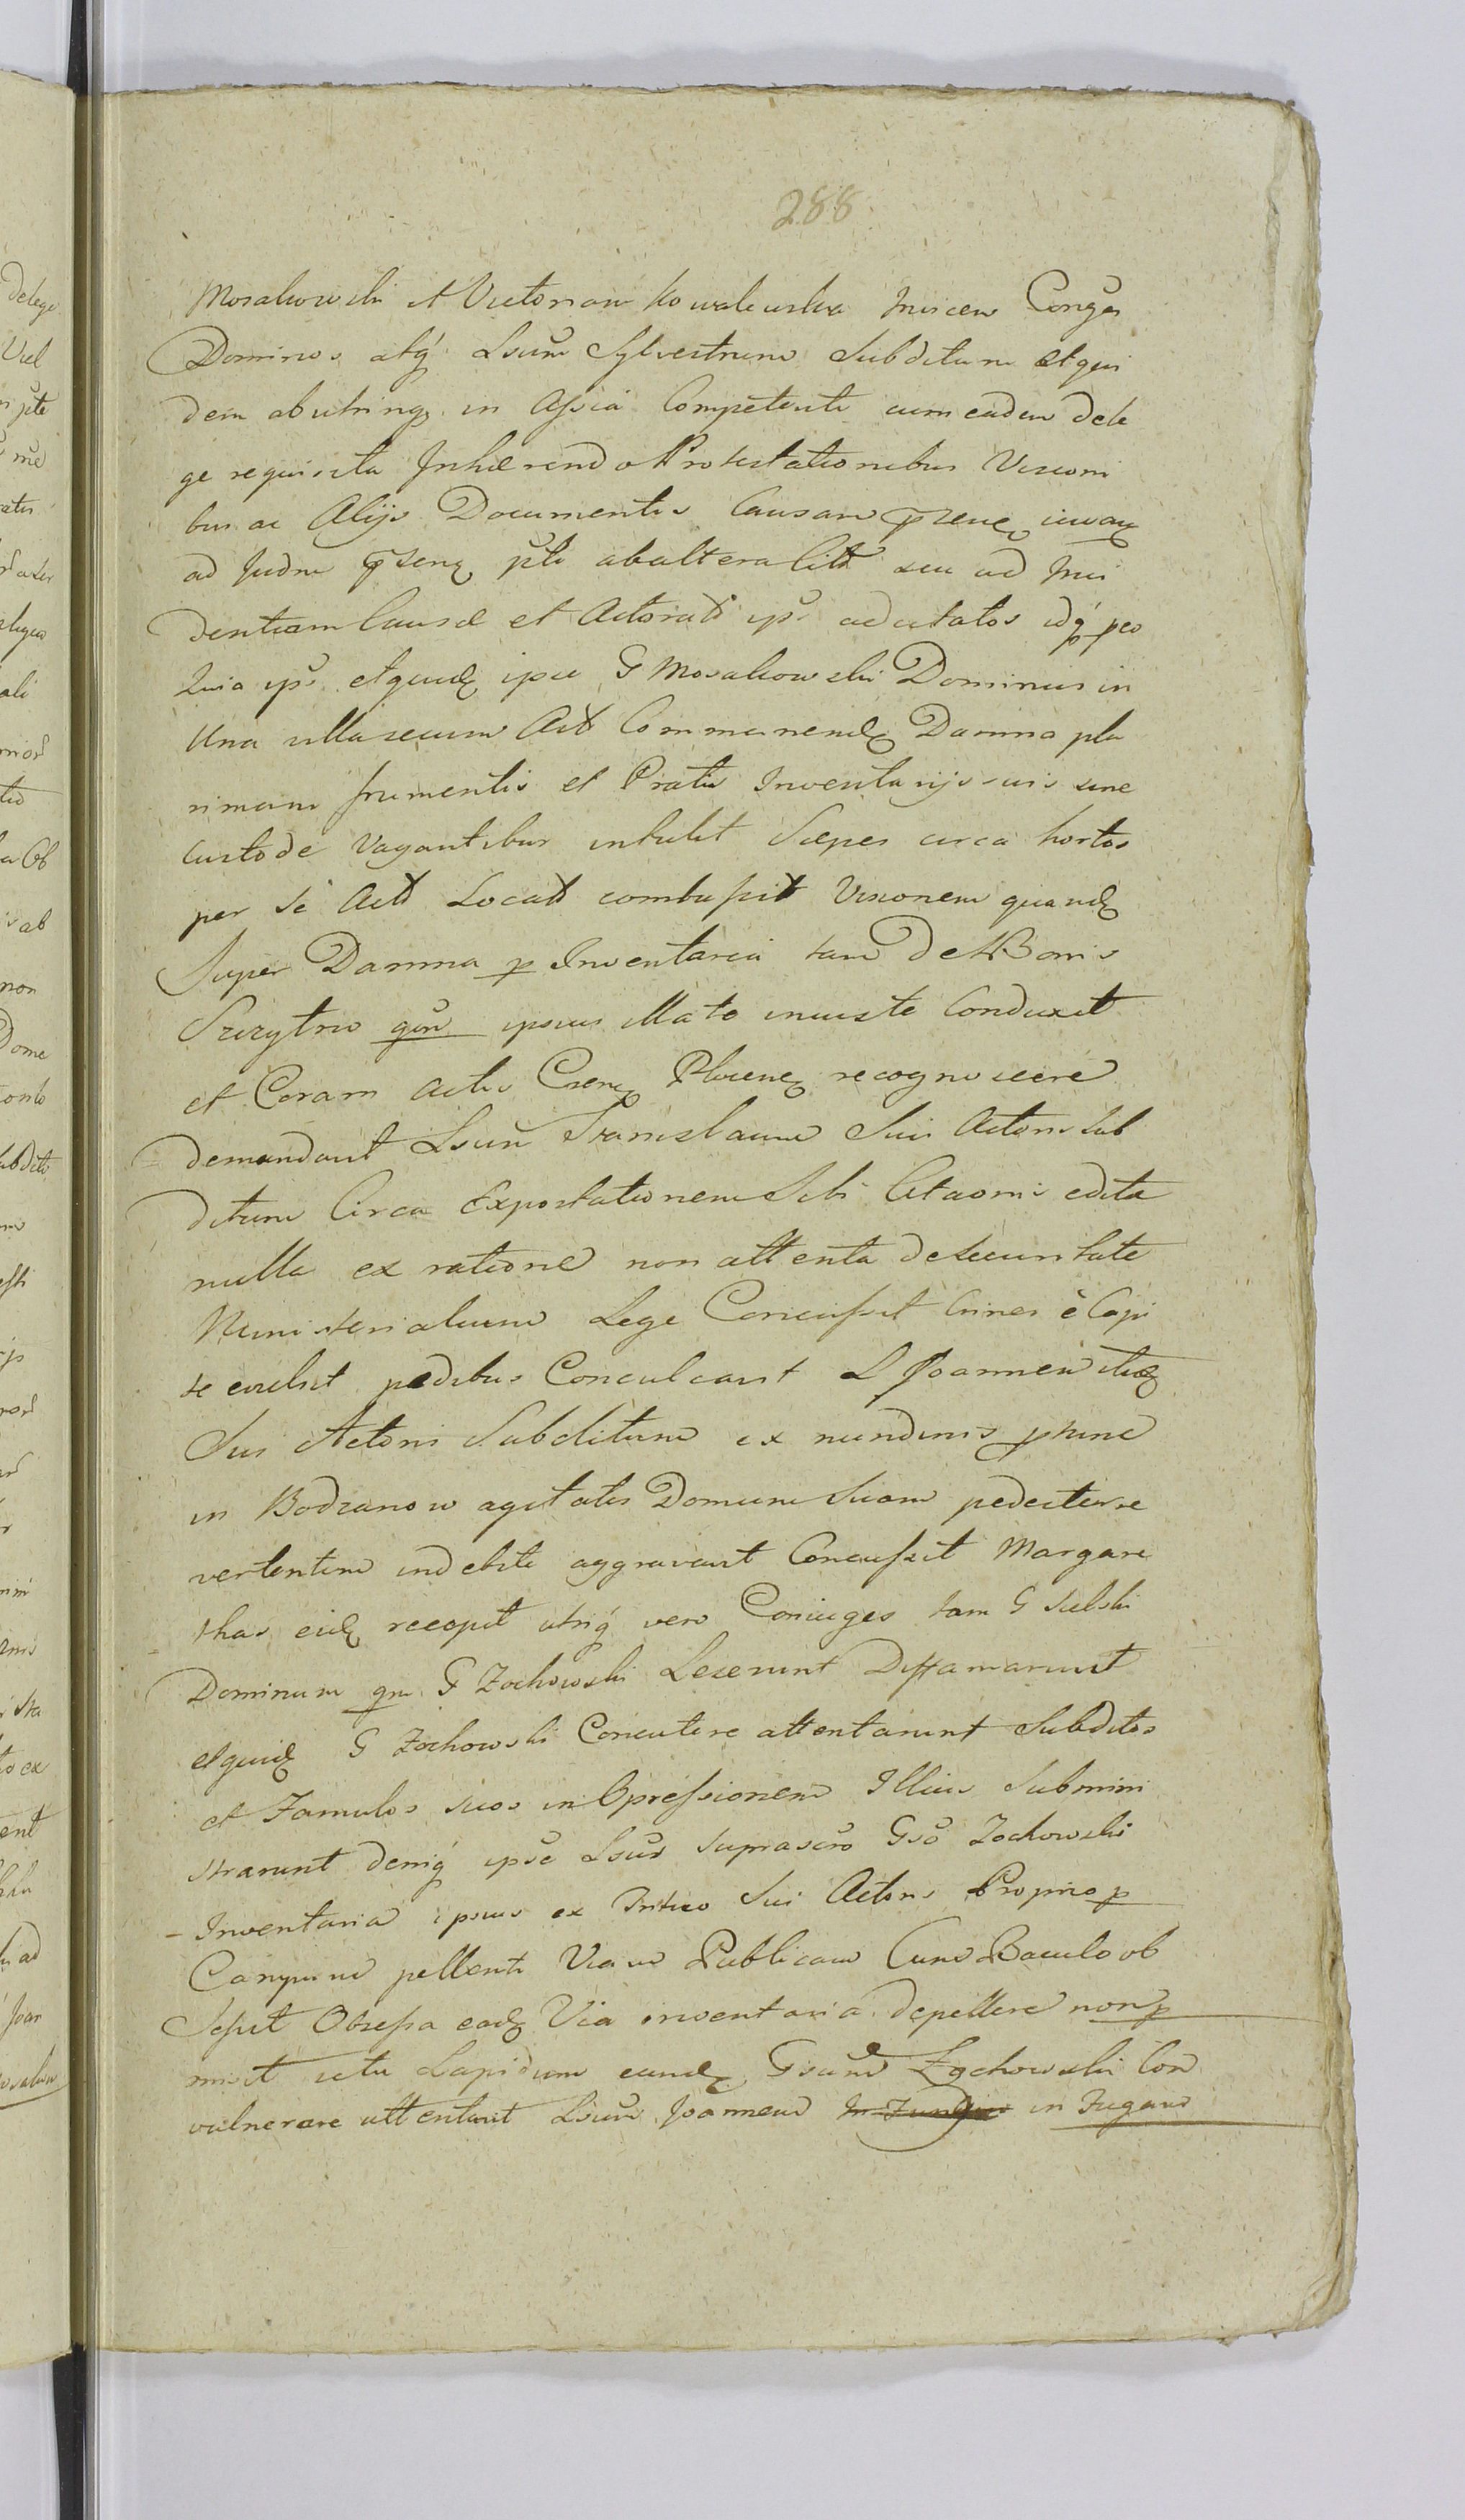 288
Mosakowski et Victoriam Kowalewska Invicem Conges
Dominos atq́ Lsum Sylvestrum Subditum Et qui
dem abutrinq in Assia Competenti cum eadem dele
ge requisita Inhærendo Protestationibus Visioni
bus ac Alijs Documentis Causam
ad Judm pti abaltera seu ad Inci
dentiam Causæ et ips adcitatos idq́ peo
Quia ips etquidę ipse G Mosakowski Dominus in
Una villa secum Commanendę Damna plu
rimam frumentis et Pratis Inventarijs suis sine
Custode Vagantibus intulit Sæpes circa hortos
per Se Act Locat combussit Visionem quandę
Super Damna p Inventaria tam De Bonis
qm ipsius illato iniuste Conduxit
et Coram Actis recognoscere
demandavit Lsum Stanislaum Sui Actoris Sub
ditum Circa Expostationem Sibi Citaonis edita
nulla ex ratione non attenta de securitate
Ministerialium Lege Concussit Crines è Capi
te evulsit pedibus Conculcavit L Joannem itidę
Sui Actoris Subditum ex nundinis phunc
in Bodzanow agitatis Domum Suam pedecterse
vertentem indebite aggravavit Concussit Margare
thas eidę recepit utriq́ vero Coniuges tam G Sielski
Dominum qm G Zochowski Leserunt Diffamarunt
etquidę G Zochowski Concutere attentarunt Subditos
et Famulos suos in Opressionem Illius Submini
strarunt deniq́ ipse Lsus suprascro Gso Zochowski
Inventaria ipsius ex Sui Actoris Proprio p
Campum pellenti Viam Publicam Cum Baculo ob
Sessit Obsessa eadę Via inventaria depellere non p
misit ictu Lapidum eundę Gsum Zochowski Con
vulnerare attentavit Lsum Joannem in Fugam